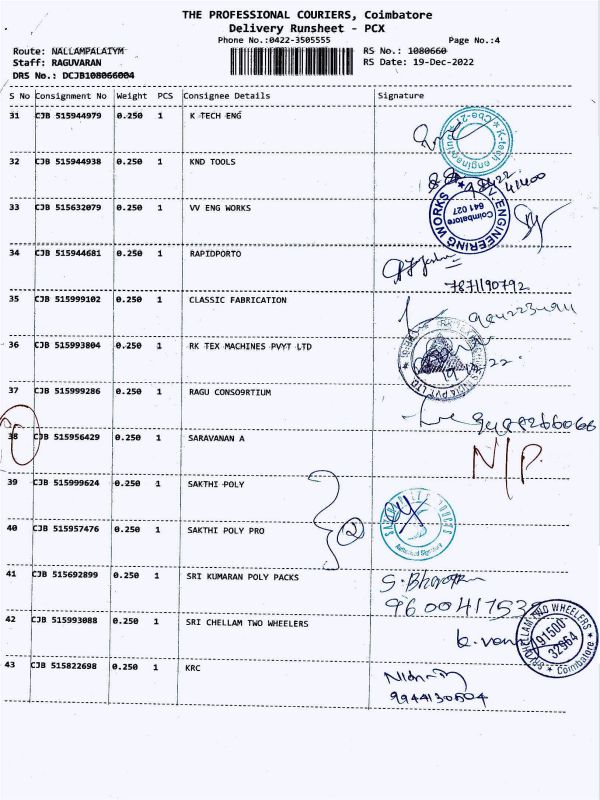 THE PROFESSIONAL COURIERS, Coimbatore
Delivery Runsheet - PCX
Phone No.:0422-3505555 Page No.:4
Route: NALLAMPALAIYM RS No.: 1080660
Staff: RAGUVARAN RS Date: 19-Dec-2022
DRS No.: DCJB108066004
S No Consignment No Weight PCS Consignee Details Signature
31 CJB 515944979 0.250 1 K TECH ENG
32 CJB 515944938 0.250 1 KND TOOLS
33 CJB 515632079 0.250 1 VV ENG WORKS
V.V. ENGINEERING WORKS
Coimbatore
641 027
34 CJB 515944681 0.250 1 RAPIDPORTO
7871190792
35 CJB 515999102 0.250 1 CLASSIC FABRICATION
36 CJB 515993804 0.250 1 RK TEX MACHINES PVYT LTD
37 CJB 515999286 0.250 1 RAGU CONSO9RTIUM
38 CJB 515956429 0.250 1 SARAVANAN A N/P.
39 CJB 515999624 0.250 1 SAKTHI POLY
2
40 CJB 515957476 0.250 1 SAKTHI POLY PRO
Authorised Signature
41 CJB 515692899 0.250 1 SRI KUMARAN POLY PACKS
42 CJB 515993088 0.250 1 SRI CHELLAM TWO WHEELERS
SRI CHELLAM TWO WHEELERS
91500
32964
Coimbatore
43 CJB 515822698 0.250 1 KRC
9944130604